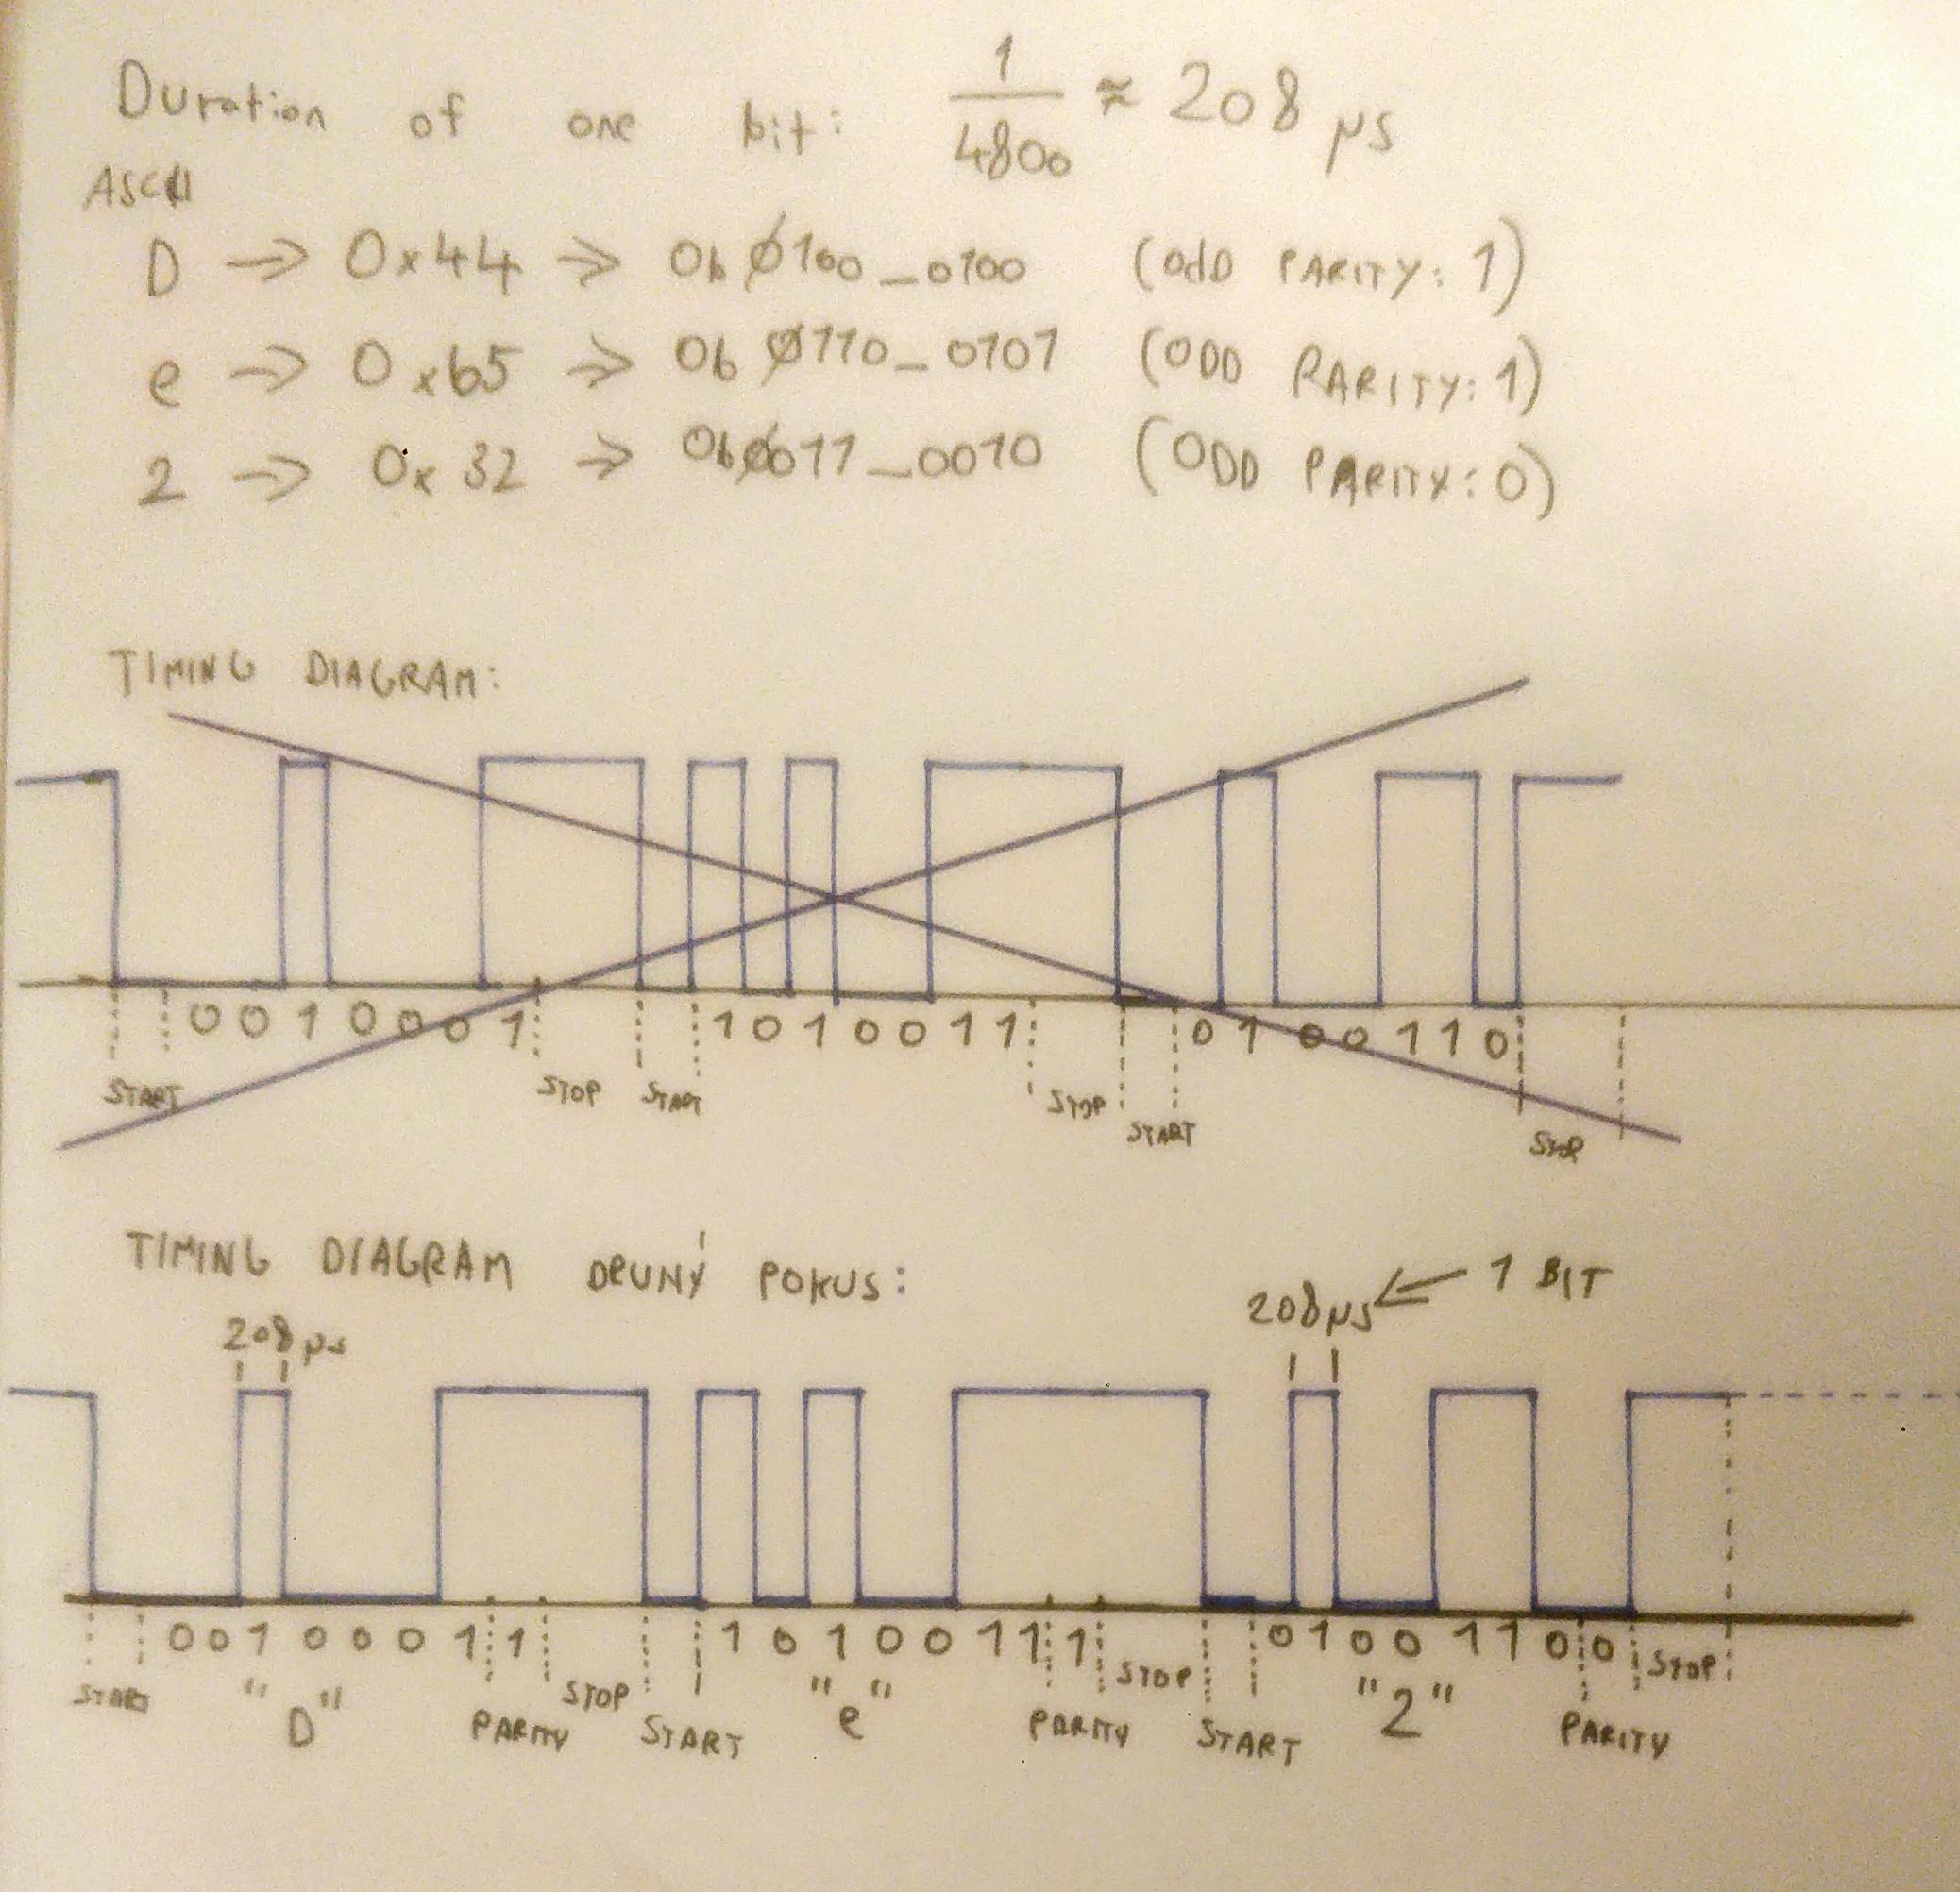 Duration of one bit: 1/4800 ≈ 208 µs
ASCII
D → 0x44 → 0b 0100_0100 (odd PARITY: 1)
e → 0x65 → 0b 0110_0101 (ODD PARITY: 1)
2 → 0x32 → 0b0011_0010 (ODD PARITY: 0)
TIMING DIAGRAM:
0 0 1 0 0 0 1 1 0 1 0 0 1 1 0 1 0 0 1 1 0
START STOP START STOP START STOP
TIMING DIAGRAM DRUHÝ POKUS:
208 µs 208 µs ← 1 BIT
0 0 1 0 0 0 1 1 1 0 1 0 0 1 1 1 0 1 0 0 1 1 0 0
START "D" PARITY STOP START "e" PARITY STOP START "2" PARITY STOP